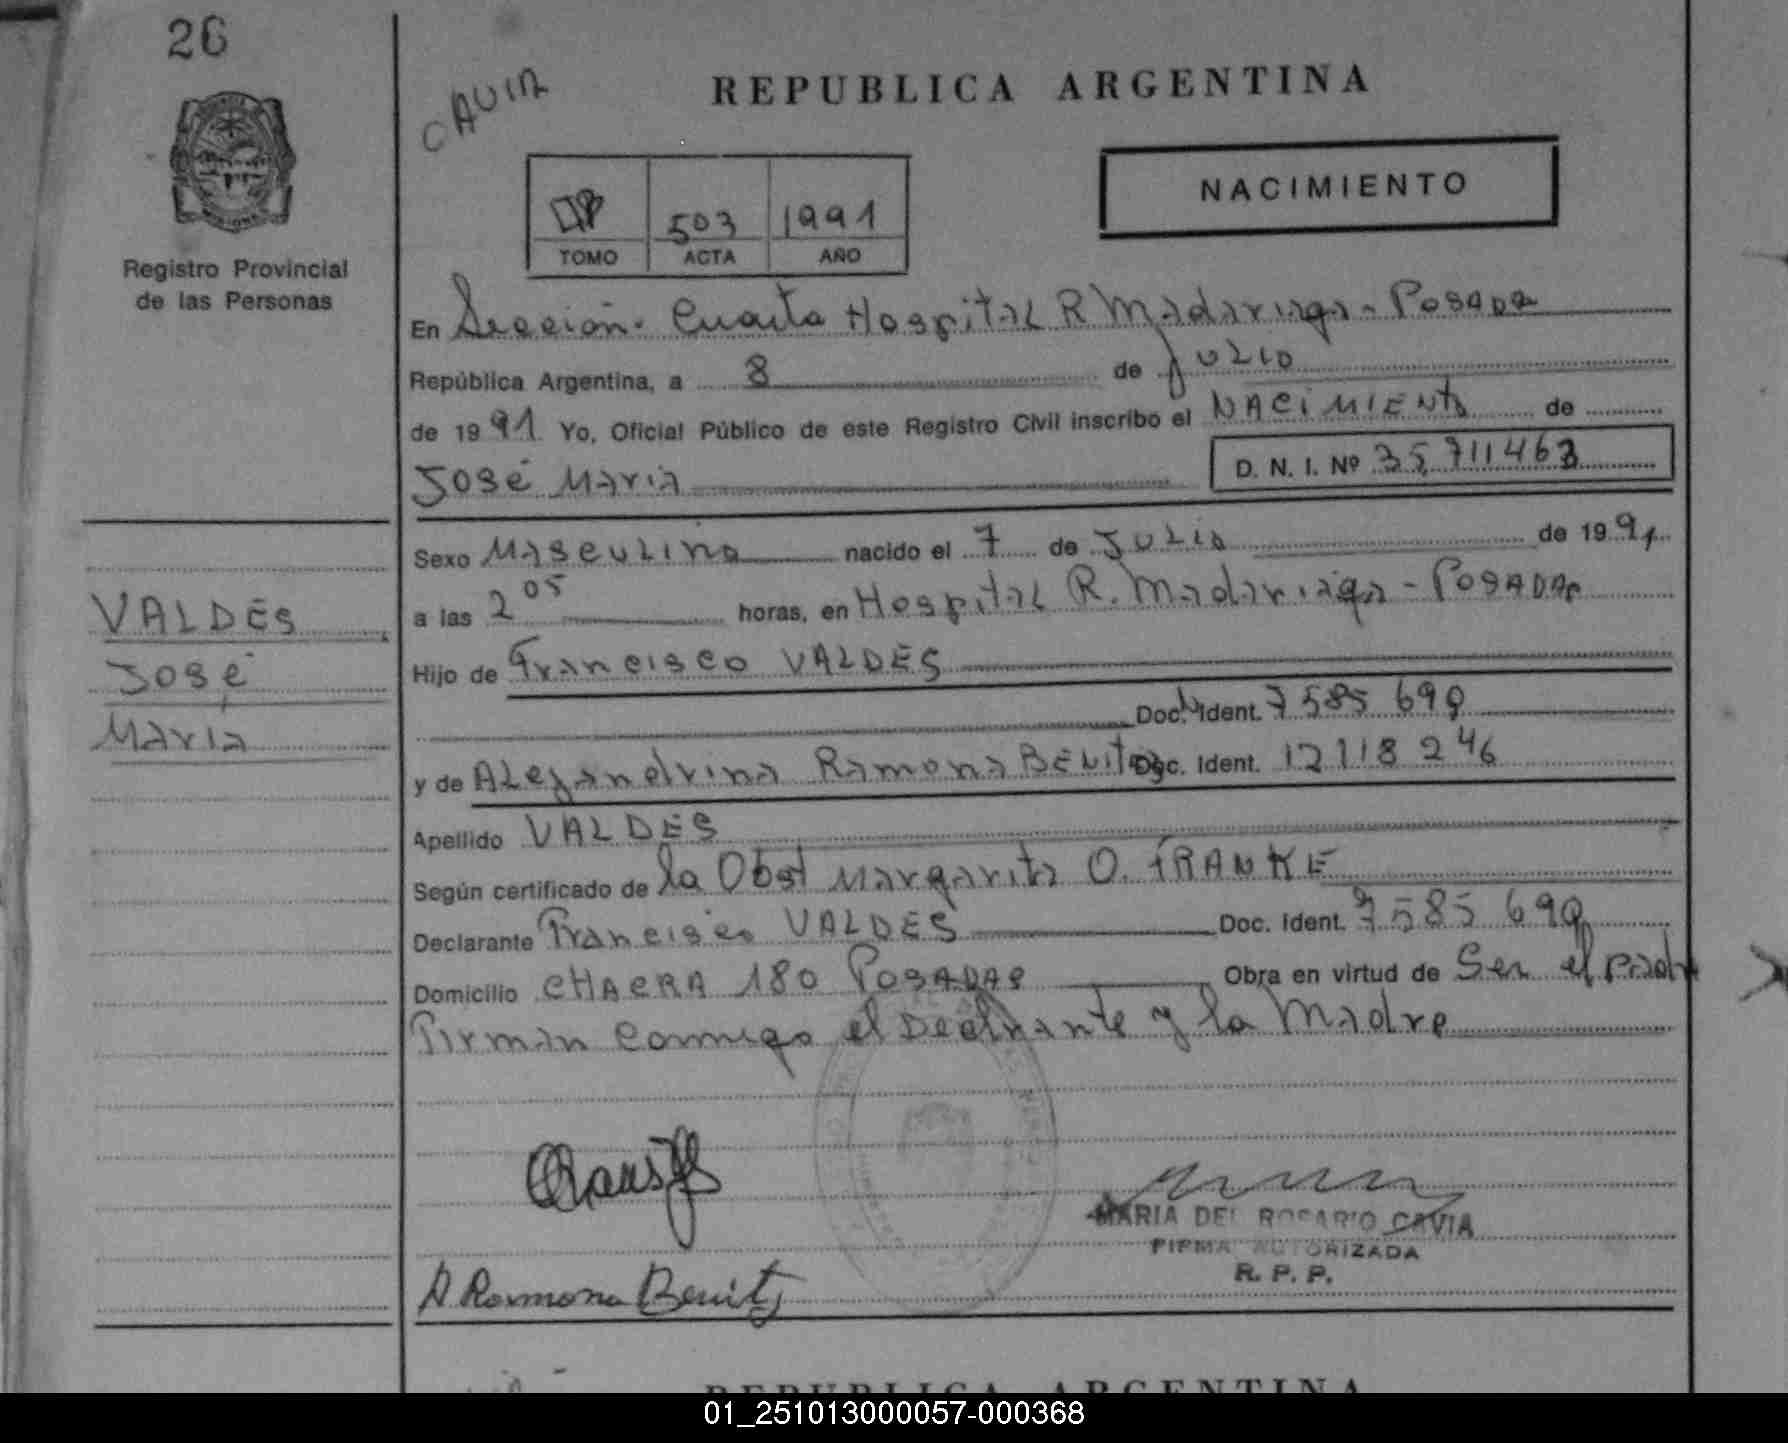 26
REPUBLICA ARGENTINA
NACIMIENTO
503 1991
TOMO ACTA AÑO
Registro Provincial
de las Personas
En Sección Cuarta Hospital R Madariaga - Posadas
República Argentina, a 8 de Julio
de 1991 Yo, Oficial Público de este Registro Civil inscribo el NACIMIENTO de
José María D. N. I. Nº 35.711463
Sexo Masculino nacido el 7 de Julio de 1991
a las 2 05 horas, en Hospital R. Madariaga - POSADAS
Hijo de Francisco VALDES
Doc. Ident. 7585 699
y de Alejandrina Ramona BENITEZ Doc. Ident. 12118 246
Apellido VALDÉS
Según certificado de la Obst Margarita O. FRANKE
Declarante Francisco VALDES Doc. Ident. 7585 699
Domicilio CHACRA 180 POSADAS Obra en virtud de Ser el padre
Firman conmigo el Declarante y la Madre
VALDÉS
José
María
MARIA DEL ROSARIO CAVIA
FIRMA AUTORIZADA
R. P. P.
A. Ramona Benitz
REPUBLICA ARGENTINA
01_251013000057-000368